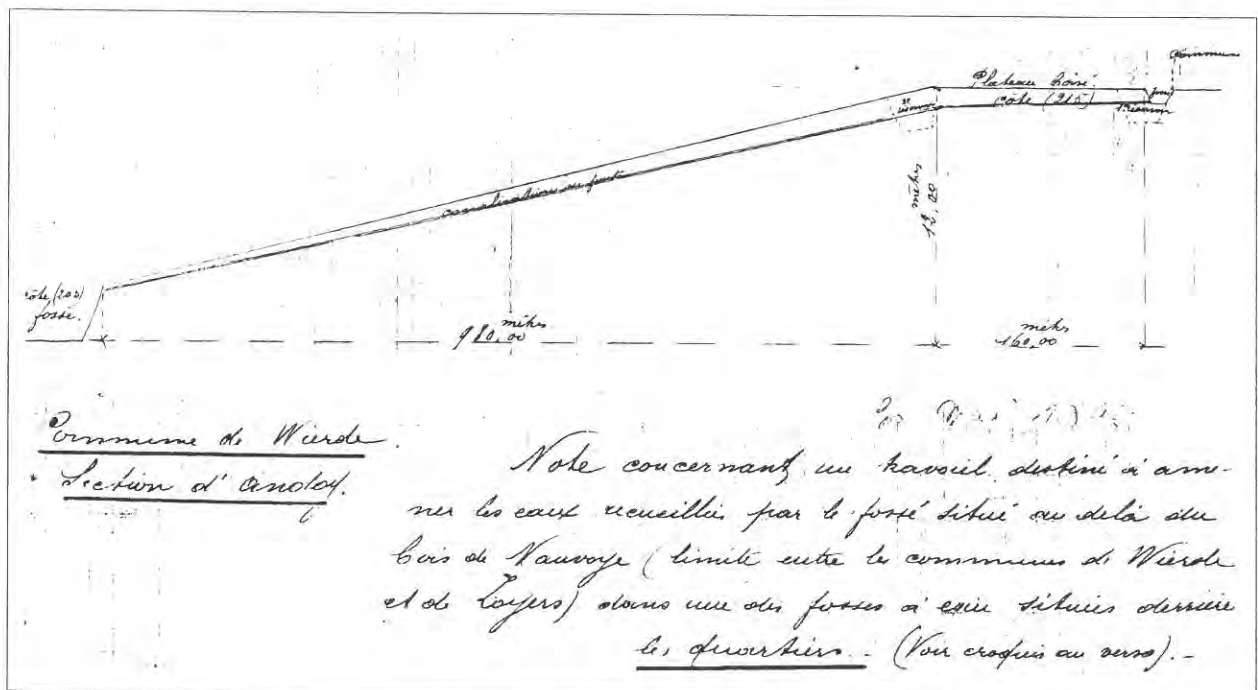 Commune
Plateau boisé.
côte (215)
canalisation en fonte
mètres
12,00
côte (203)
fossé.
mètres
980,00
mètres
160,00
Commune de Wierde.
Section d'Andoy.
Note concernant un travail destiné à ame-
ner les eaux recueillies par le fossé situé au delà du
bois de Nauvoye (limite entre les communes de Wierde
et de Loyers) dans une des fosses à eau situées derrière
les quartiers. (Voir croquis au verso). -